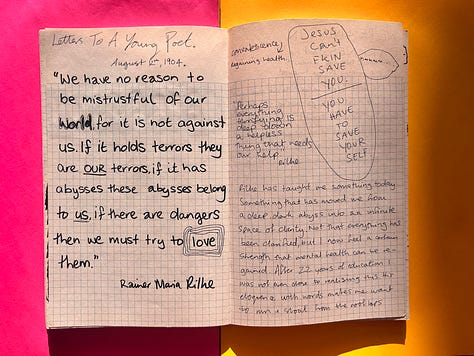 Letters To A Young Poet.
August 12th, 1904.
"We have no reason to
be mistrustful of our
World, for it is not against
us. If it holds terrors they
are OUR terrors, if it has
abysses these abysses belong
to us, if there are dangers
then we must try to love
them."
Rainer Maria Rilke
convalescence
regaining health.
JESUS
Can't
FKIN
SAVE
YOU.
YOU
HAVE
TO
SAVE
YOUR
SELF
"Perhaps
everything
terrifying is
deep down
a helpless
thing that needs
our help.
Rilke
Rilke has taught me something today
Something that has moved me from
a deep dark abyss into an infinite
space of clarity. Not that everything has
been clarified, but I now feel a certain
strength that mental health can be re
gained. After 22 years of education I
was not even close to realising this. His
eloquence with words makes me want
to run & shout from the rooftops